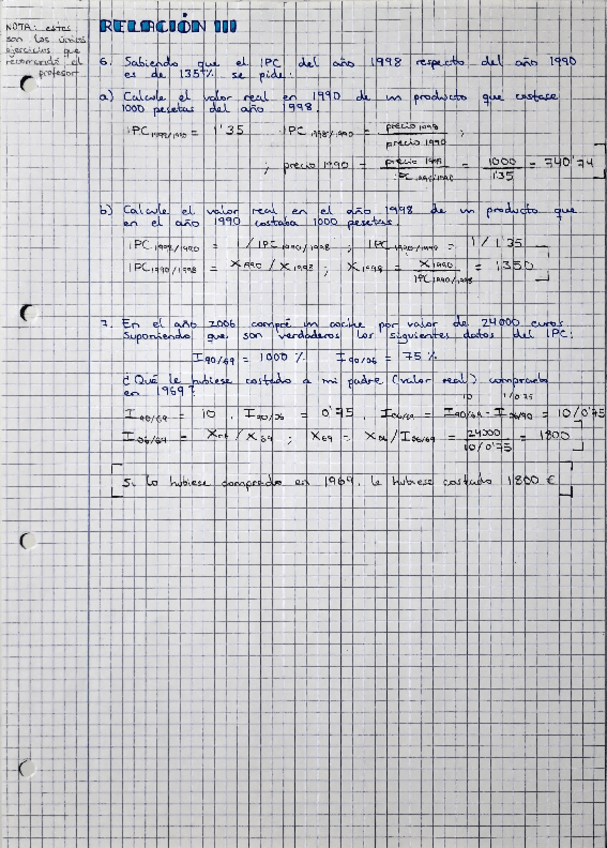 NOTA: estos
son los únicos
ejercicios que
recomendó el
profesor
RELACIÓN III
6. Sabiendo que el IPC del año 1998 respecto del año 1990
es de 135% se pide:
a) Calcule el valor real en 1990 de un producto que costase
1000 pesetas del año 1998.
IPC 1998/1990 = 1'35 IPC 1998/1990 = precio 1998 / precio 1990 ;
; precio 1990 = precio 1998 / IPC 1998/1990 = 1000 / 1'35 = 740'74
b) Calcule el valor real en el año 1998 de un producto que
en el año 1990 costaba 1000 pesetas.
IPC 1998/1990 = 1 / IPC 1990/1998 ; IPC 1990/1998 = 1 / 1'35
IPC 1990/1998 = X 1990 / X 1998 ; X 1998 = X 1990 / IPC 1990/1998 = 1350
7. En el año 2006 compré un coche por valor de 24000 euros.
Suponiendo que son verdaderos los siguientes datos del IPC:
I 90/69 = 1000 % I 90/06 = 75 %
¿Qué le hubiese costado a mi padre (valor real) comprarlo
en 1969?
10 1/0'75
I 90/69 = 10 , I 90/06 = 0'75 , I 06/69 = I 90/69 · I 06/90 = 10/0'75
I 06/69 = X 06 / X 69 ; X 69 = X 06 / I 06/69 = 24000 / 10/0'75 = 1800
Si lo hubiese comprado en 1969, le hubiese costado 1800 €